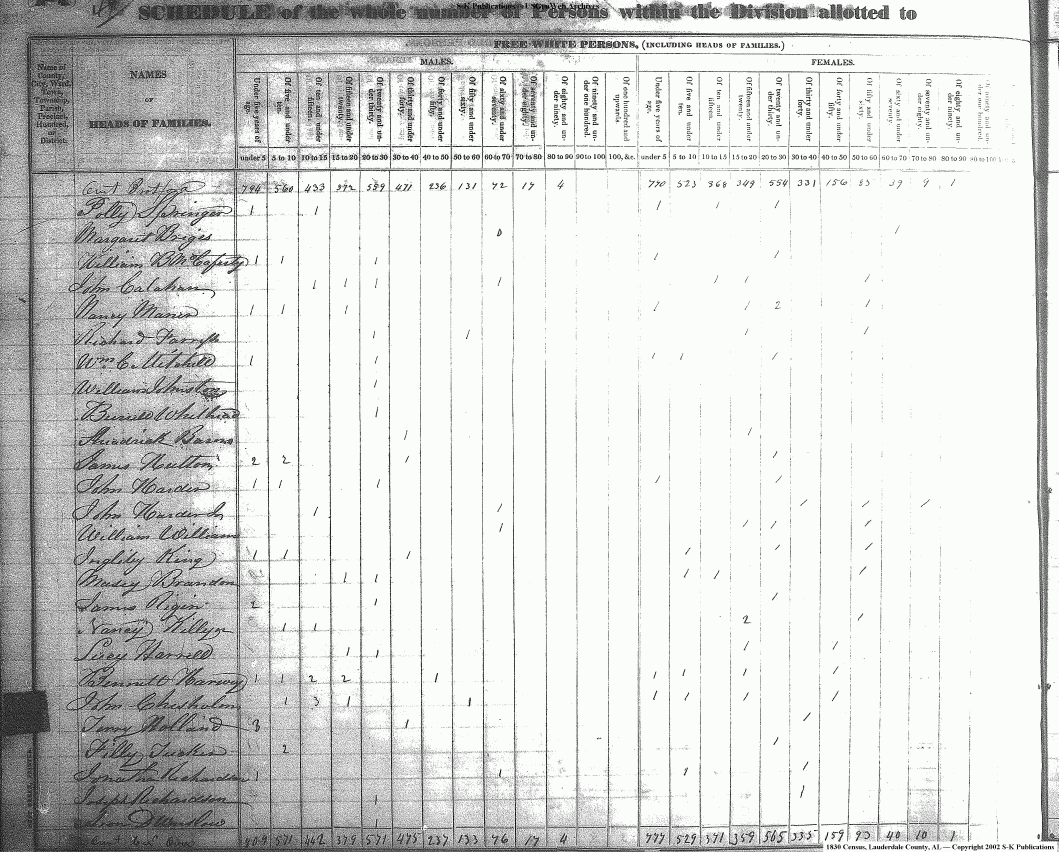 S-K Publications - USGenWeb Archives
SCHEDULE of the whole number of Persons within the Division allotted to
FREE WHITE PERSONS, (INCLUDING HEADS OF FAMILIES.)
MALES. FEMALES.
Name of County, City, Ward, Town, Township, Parish, Precinct, Hundred, or District.
NAMES
OF
HEADS OF FAMILIES.
Under five years of age. Of five and under ten. Of ten and under fifteen. Of fifteen and under twenty. Of twenty and under thirty. Of thirty and under forty. Of forty and under fifty. Of fifty and under sixty. Of sixty and under seventy. Of seventy and under eighty. Of eighty and under ninety. Of ninety and under one hundred. Of one hundred and upwards. Under five years of age. Of five and under ten. Of ten and under fifteen. Of fifteen and under twenty. Of twenty and under thirty. Of thirty and under forty. Of forty and under fifty. Of fifty and under sixty. Of sixty and under seventy. Of seventy and under eighty. Of eighty and under ninety.
under 5 5 to 10 10 to 15 15 to 20 20 to 30 30 to 40 40 to 50 50 to 60 60 to 70 70 to 80 80 to 90 90 to 100 100, &c. under 5 5 to 10 10 to 15 15 to 20 20 to 30 30 to 40 40 to 50 50 to 60 60 to 70 70 to 80 80 to 90 90 to 100
794 560 433 372 559 471 236 131 72 17 4 770 523 368 349 554 331 156 85 39 9 1
Polly Springer 1 1 1 1 1
Margaret Briges 0 1
William B McCaferty 1 1 1 1 1
John Calahan 1 1 1 1 1 1 1
Nancy Maner 1 1 1 1 1 2 1
Richard 1 1 1 1
Wm C. Mitchell 1 1 1 1 1
William Johnston 1
Burrell Whithead 1
Barns 1 1
James Hutton 2 2 1 1
John Harder 1 1 1 1 1
John Harder 1 1 1 1 1
William William 1 1 1 1
Ingleby King 1 1 1 1 1 1
Brandon 1 1 1 1 1
James Rigin 2 1 1
Nancy 1 1 2 1
Lucy Harrell 1 1 1 1
Bennett Harvey 1 1 2 2 1 1 1 1 1
John Chisholm 1 3 1 1 1 1 1 1
Terry Holland 3 1 1
Tilly Tucker 2 1
Jonatha Richardson 1 1 1 1
Joseph Richardson 1 1
Winslow 1
809 571 442 379 571 475 237 133 76 17 4 777 529 371 359 565 335 159 90 40 10 1
1830 Census, Lauderdale County, AL — Copyright 2002 S-K Publications